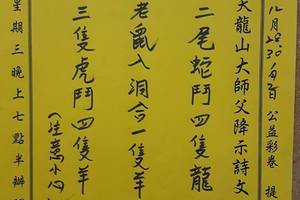 八月28.30.有百 公益彩卷 提
天龍山大師父降示詩文
二尾蛇鬥四隻龍
老鼠入洞合一隻羊
三隻虎鬥四隻羊
(注意小心
星期三晚上七點半辦